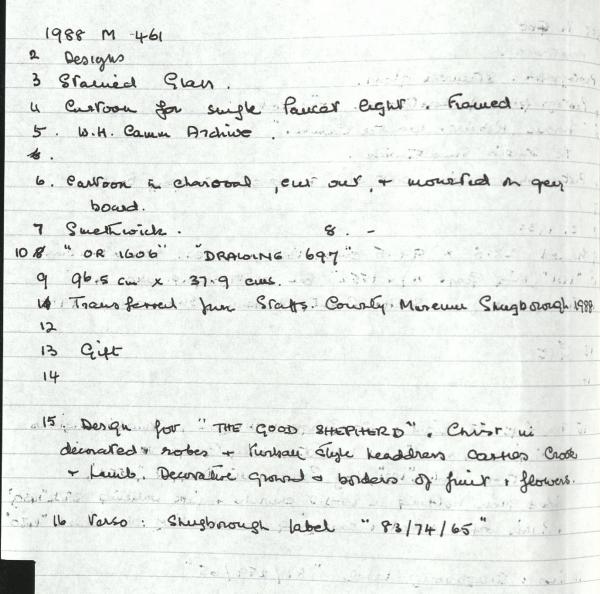 1988 M 461
2 Designs
3 Stained Glass.
4 Cartoon for single lancet light. Framed.
5. W.H. Camm Archive.
6. Cartoon in charcoal, cut out, + mounted on grey
board.
7 Smethwick. 8. -
10 "OR 1606" "DRAWING 697"
9 96.5 cm x 37.9 cms.
11 Transferred from Staffs. County Museum Shugborough 1988
12
13 Gift
14
15. Design for "THE GOOD SHEPHERD". Christ in
decorated robes + Turban style headdress carries Crook
+ Lamb. Decorative ground + borders of fruit + flowers.
16 Verso: Shugborough label "83/74/65"